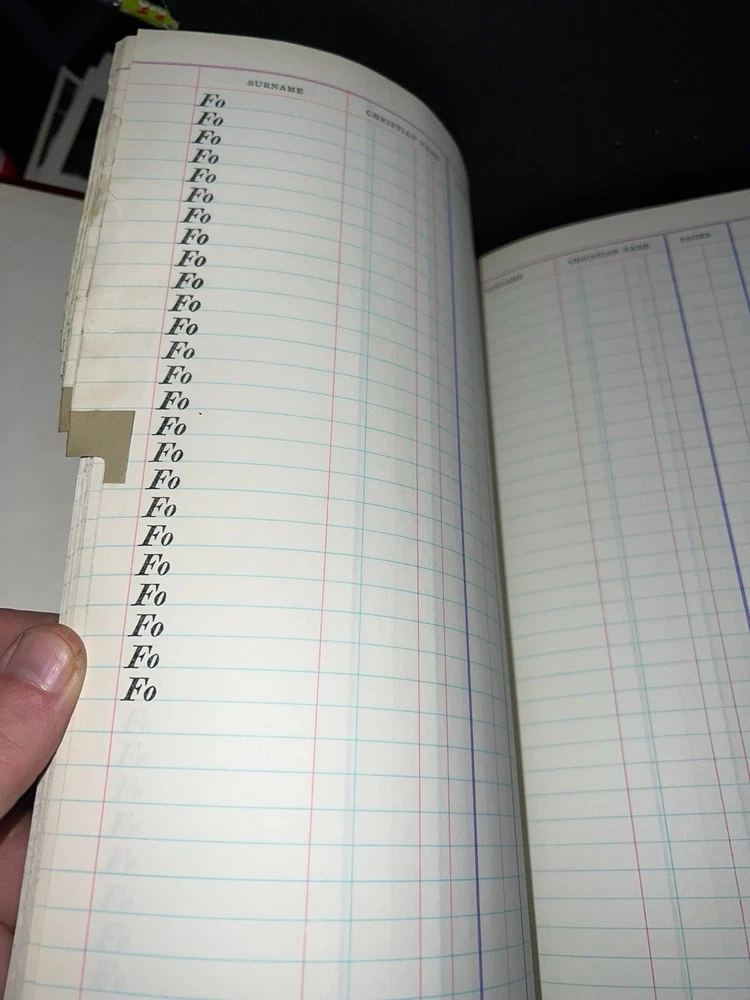 SURNAME CHRISTIAN NAME
Fo
Fo
Fo
Fo
Fo
Fo
Fo
Fo
Fo
Fo
Fo
Fo
Fo
Fo
Fo
Fo
Fo
Fo
Fo
Fo
Fo
Fo
Fo
Fo
Fo
SURNAME CHRISTIAN NAME PAGES